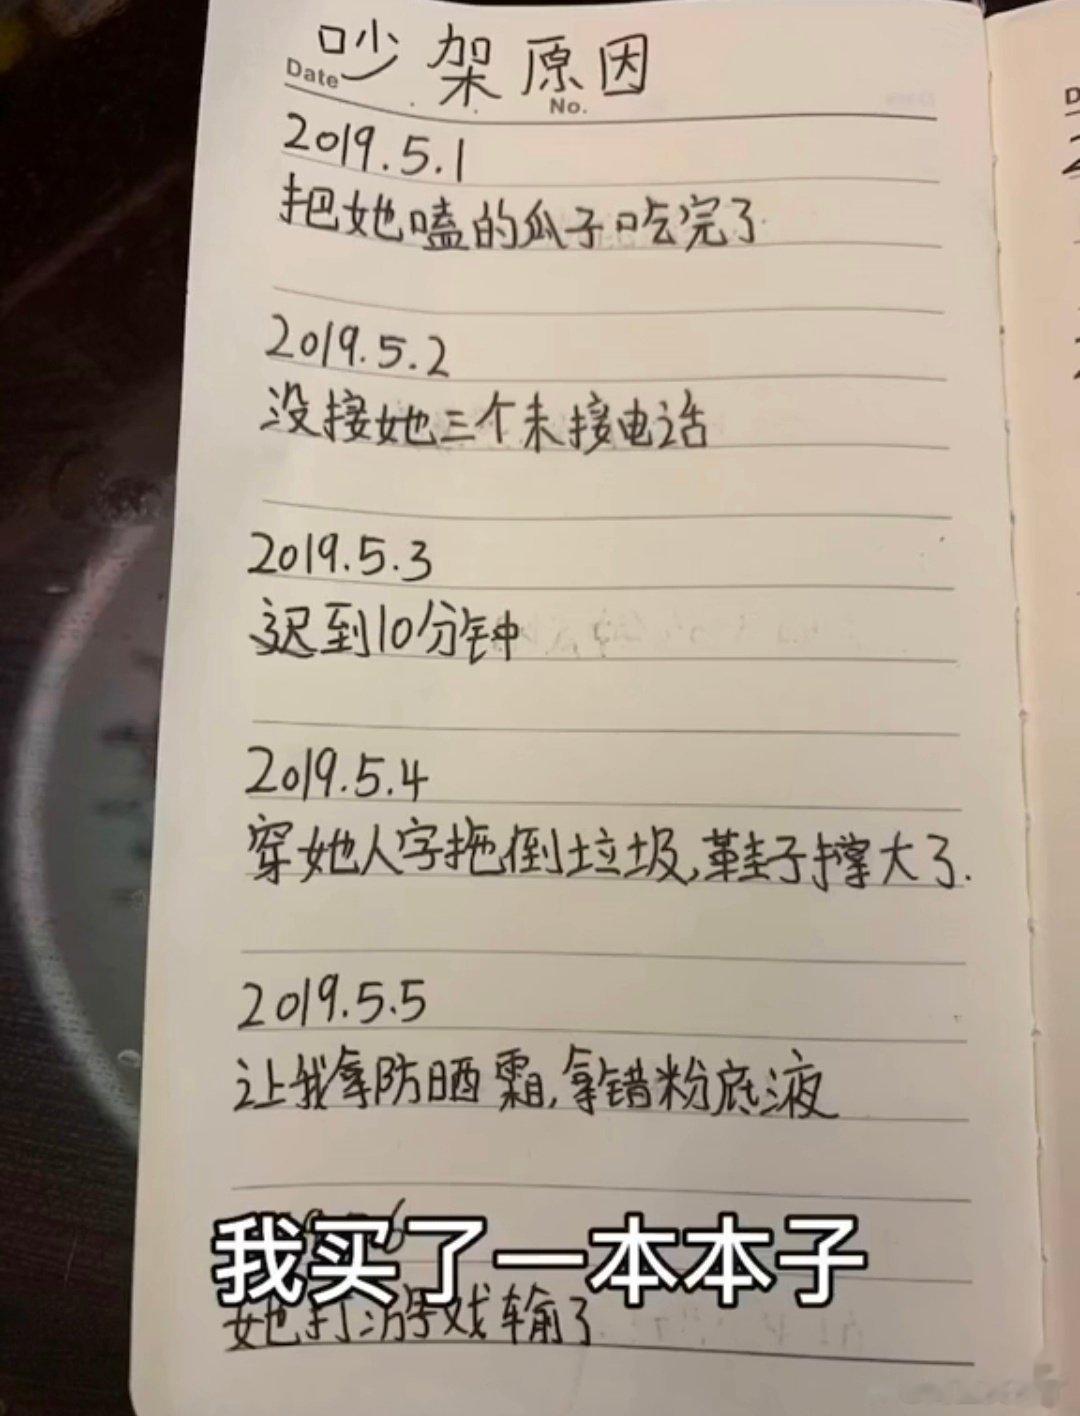 吵架原因
Date
No.
2019.5.1
把她嗑的瓜子吃完了
2019.5.2
没接她三个未接电话
2019.5.3
迟到10分钟
2019.5.4
穿她人字拖倒垃圾,鞋子撑大了.
2019.5.5
让我拿防晒霜,拿错粉底液
我买了一本本子
她打游戏输了